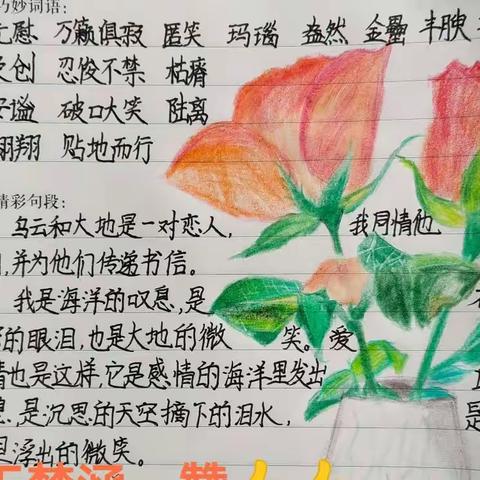 巧妙词语:
慰 万籁俱寂 匿笑 玛瑙 盎然 金罍 丰腴
创 忍俊不禁 枯瘠
破口大笑 陆离
翱翔 贴地而行
精彩句段:
乌云和大地是一对恋人, 我同情他
并为他们传递书信。
我是海洋的叹息,是
的眼泪,也是大地的微笑。爱
情也是这样,它是感情的海洋里发出
是沉思的天空摘下的泪水, 是
浮出的微笑。